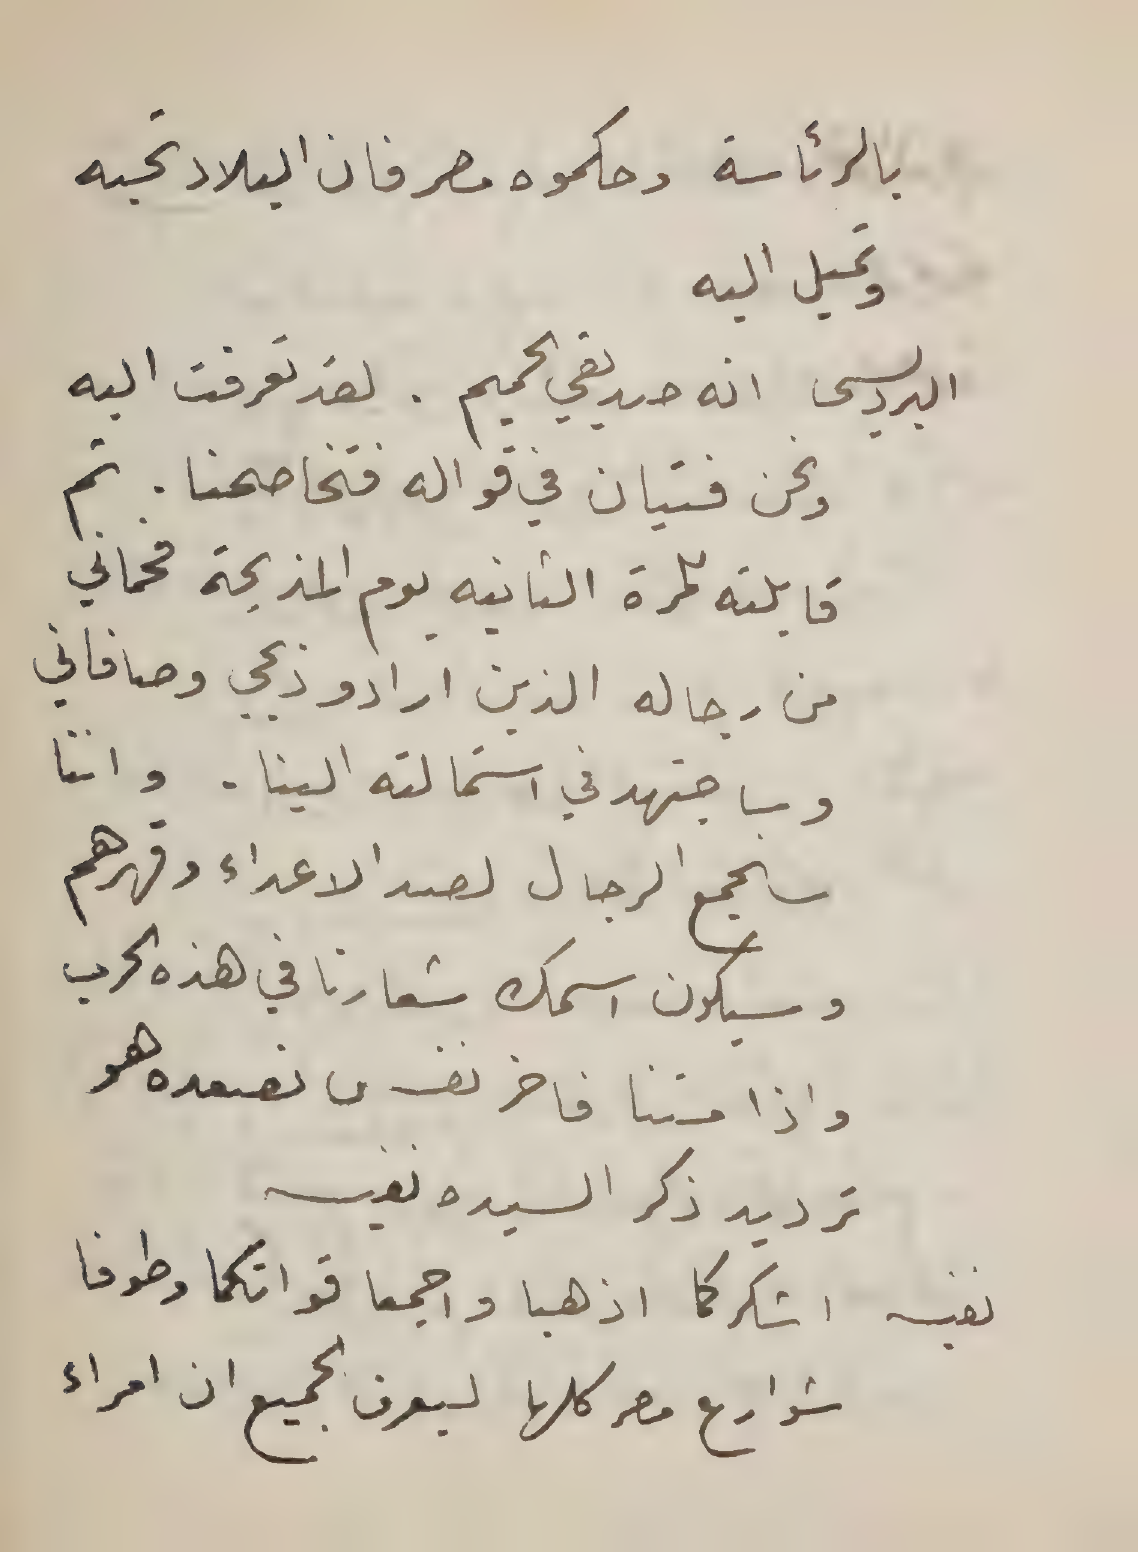 بالرئاسة وحكموه مصر فان البلاد تحبه
وتميل اليه
البرديسى انه صديقي الحميم . لقد تعرفت اليه
ونحن فتيان في قواله فتخاصمنا . ثم
قابلته للمرة الثانيه يوم المذبحة فحماني
من رجاله الذين ارادو ذبحي وصافاني
وساجتهد في استمالته الينا . واننا
سنجمع الرجال لصد الاعداء وقهرهم
وسيكون اسمك شعارنا في هذه الحرب
واذا متنا فاخر نفس نصعده هو
ترديد ذكر السيده نفيسه
نفيسه اشكركما اذهبا واجمعا قواتكما وطوفا
شوارع مصر كلها ليعرف الجميع ان امراء